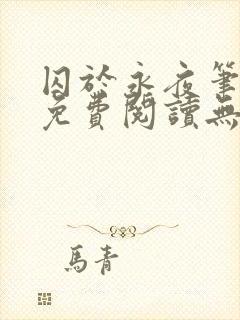 囚於永夜筆
免費閱讀無
馬青